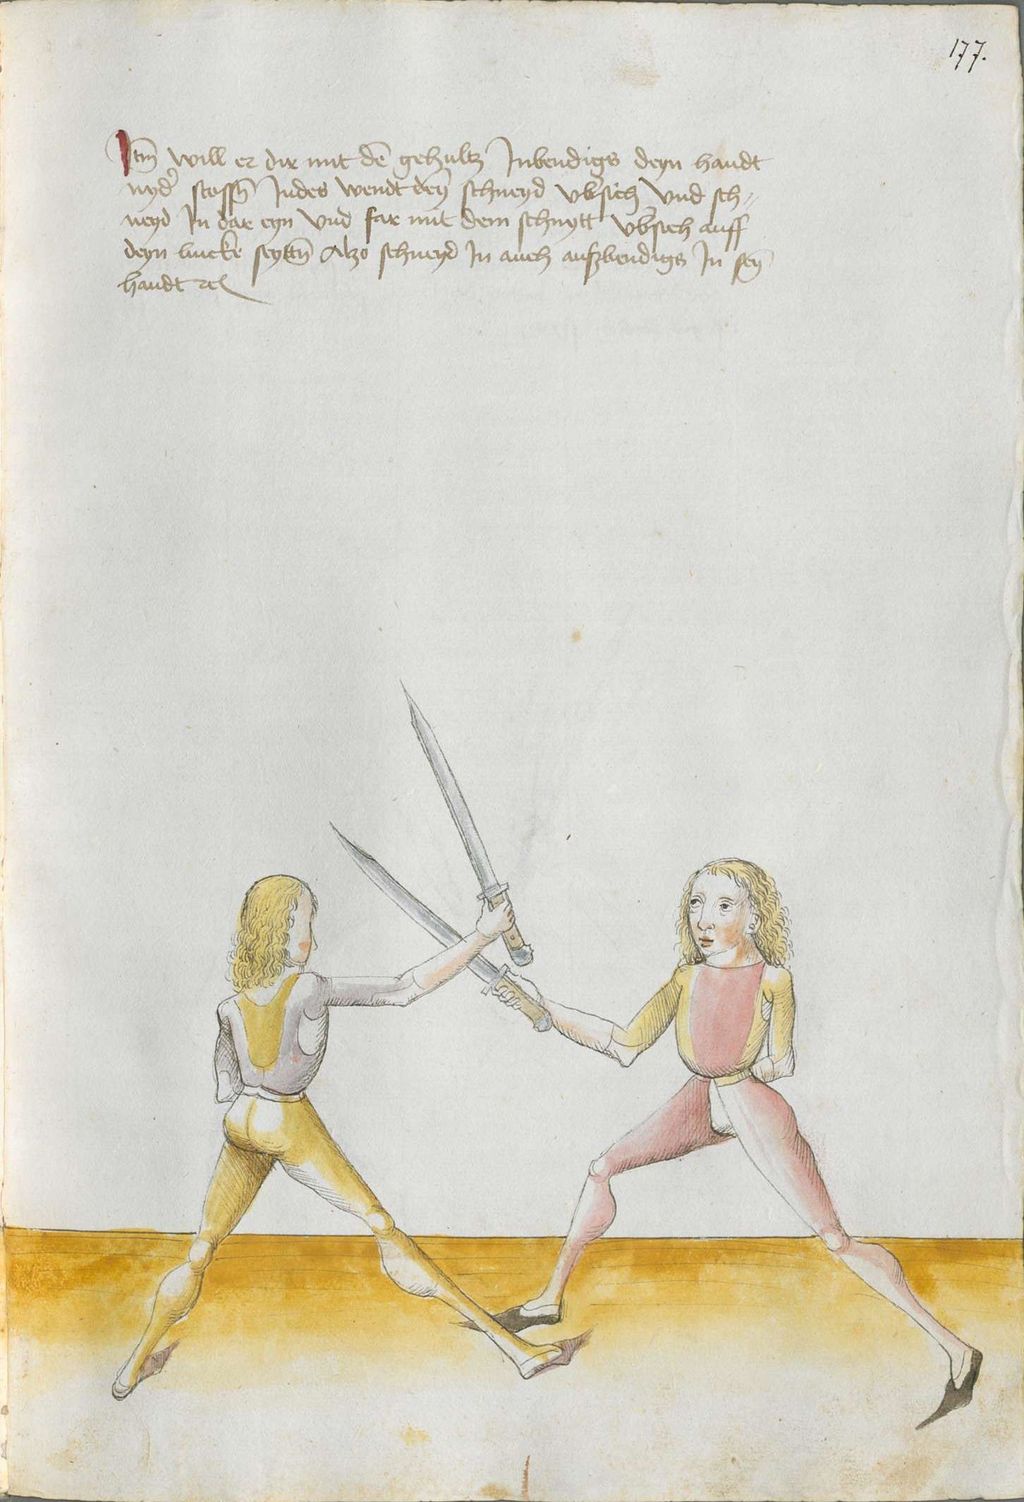 177.
Itm̄ will er dir mit dē gehultz Inbendigs deyn handt
nyd' stossn̄ Indes wendt deȳ schneyd vbsich vnd sch=
neyd In dar eyn vnd far mit dem schnytt vbsich auff
deyn lincke seyttn̄ Alzo schneyd In auch auszbendigs In seȳ
handt rc